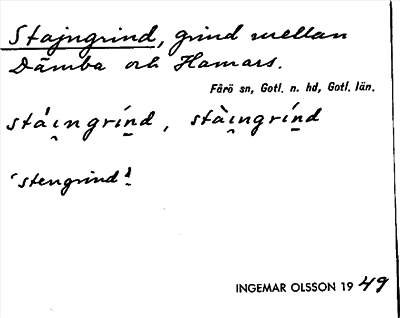 Stajngrind, grind mellan
Dämba och Hamars.
Fårö sn, Gotl. n. hd, Gotl. län.
stáɩ̯ngrín̠d, stàɩ̯ngrín̠d
'stengrind'
INGEMAR OLSSON 1949